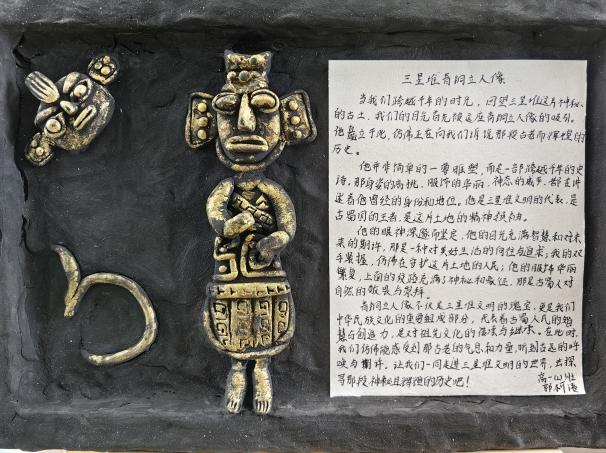 三星堆青铜立人像
当我们跨越千年的时光,回望三星堆这片神秘
的古土,我们的目光首先被这座青铜立人像的吸引。
他矗立于此,仿佛正在向我们诉说那段古老而辉煌的
历史。
他并非简单的一尊雕塑,而是一部跨越千年的史
诗,那身姿的高挑、服饰的华丽、神态的威严,都在讲
述着他曾经的身份和地位。他是三星堆文明的代表,是
古蜀国的王者,是这片土地的精神领袖。
他的眼神深邃而坚定,他的目光充满智慧和对未
来的期许,那是一种对美好生活的向往与追求;他的双
手紧握,仿佛在守护这片土地的人民;他的服饰华丽
繁复,上面的纹路充满了神秘和象征,那是古蜀人对
自然的敬畏与崇拜。
青铜立人像不仅是三星堆文明的瑰宝,更是我们
中华民族文化的重要组成部分,代表着古蜀人民的智
慧与创造力,是对祖先文化的传颂与继承。在此时,
我们仿佛能感受到那古老的气息和力量,听到古远的呼
唤与期许。让我们一同走进三星堆文明的世界,去探
寻那段神秘且辉煌的历史吧!
高一